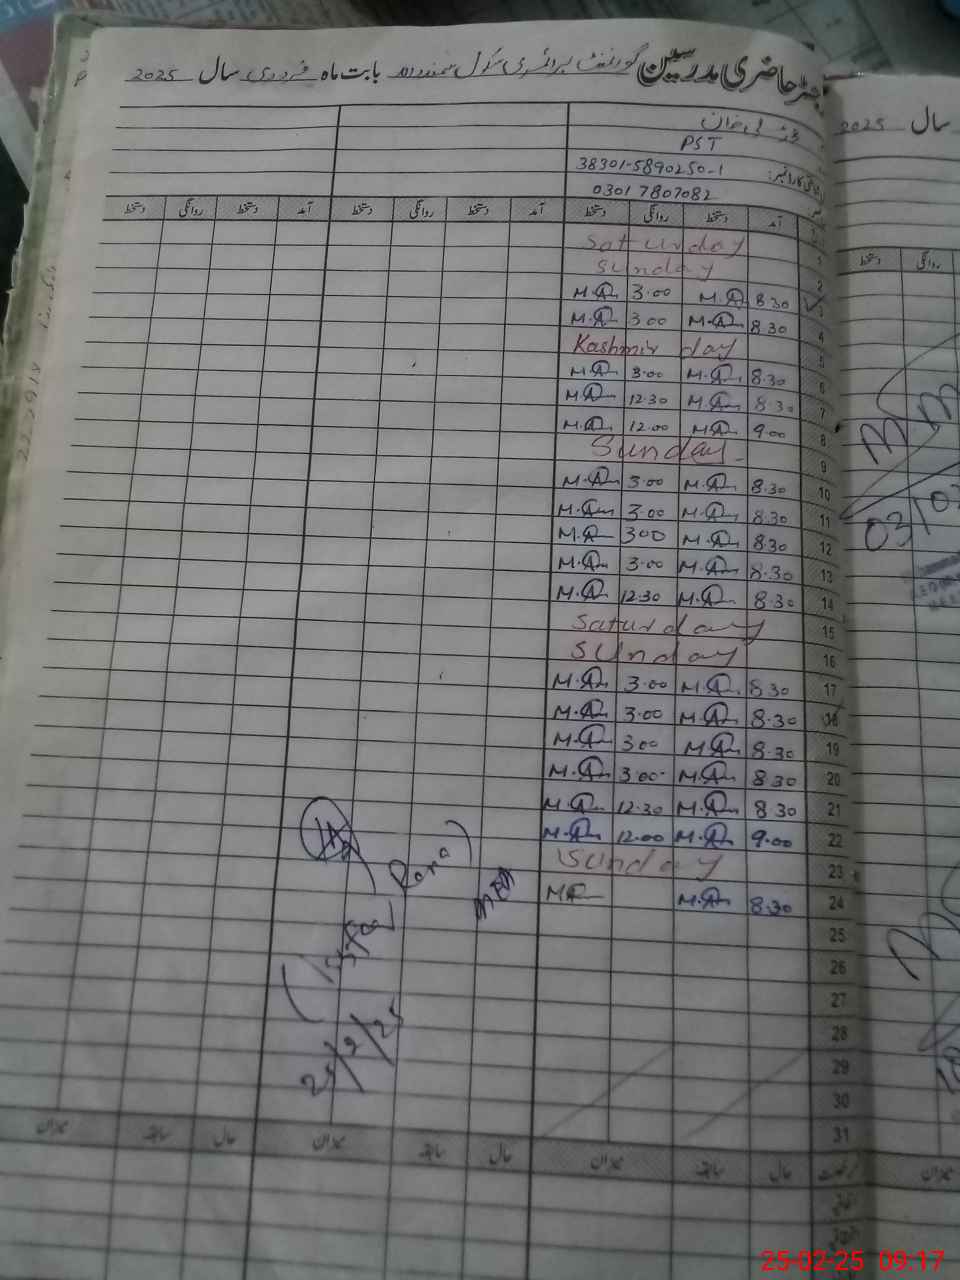 رجسٹر حاضری مدرسین گورنمنٹ پرائمری سکول بابت ماہ فروری سال 2025
سال 2025
PST
38301-5890250-1
0301 7807082
آمد دستخط روانگی دستخط آمد دستخط روانگی دستخط آمد دستخط روانگی دستخط
روانگی دستخط
1 Saturday
2 Sunday
3 8.30 M.A 3.00 M.A
4 8.30 M.A 3.00 M.A
5 Kashmir day
6 8.30 M.A 3.00 M.A
7 8.30 M.A 12.30 M.A
8 9.00 M.A 12.00 M.A
9 Sunday
10 8.30 M.A 3.00 M.A
11 8.30 M.A 3.00 M.A
12 8.30 M.A 3.00 M.A
13 8.30 M.A 3.00 M.A
14 8.30 M.A 12.30 M.A
15 Saturday
16 Sunday
17 8.30 M.A 3.00 M.A
18 8.30 M.A 3.00 M.A
19 8.30 M.A 3.00 M.A
20 8.30 M.A 3.00 M.A
21 8.30 M.A 12.30 M.A
22 9.00 M.A 12.00 M.A
23 Sunday
24 8.30 M.A M.A
25
26
27
28
29
30
31
Rana)
25/2/25
حال سابقہ میزان حال سابقہ میزان حال سابقہ میزان
میزان
25-02-25 09:17